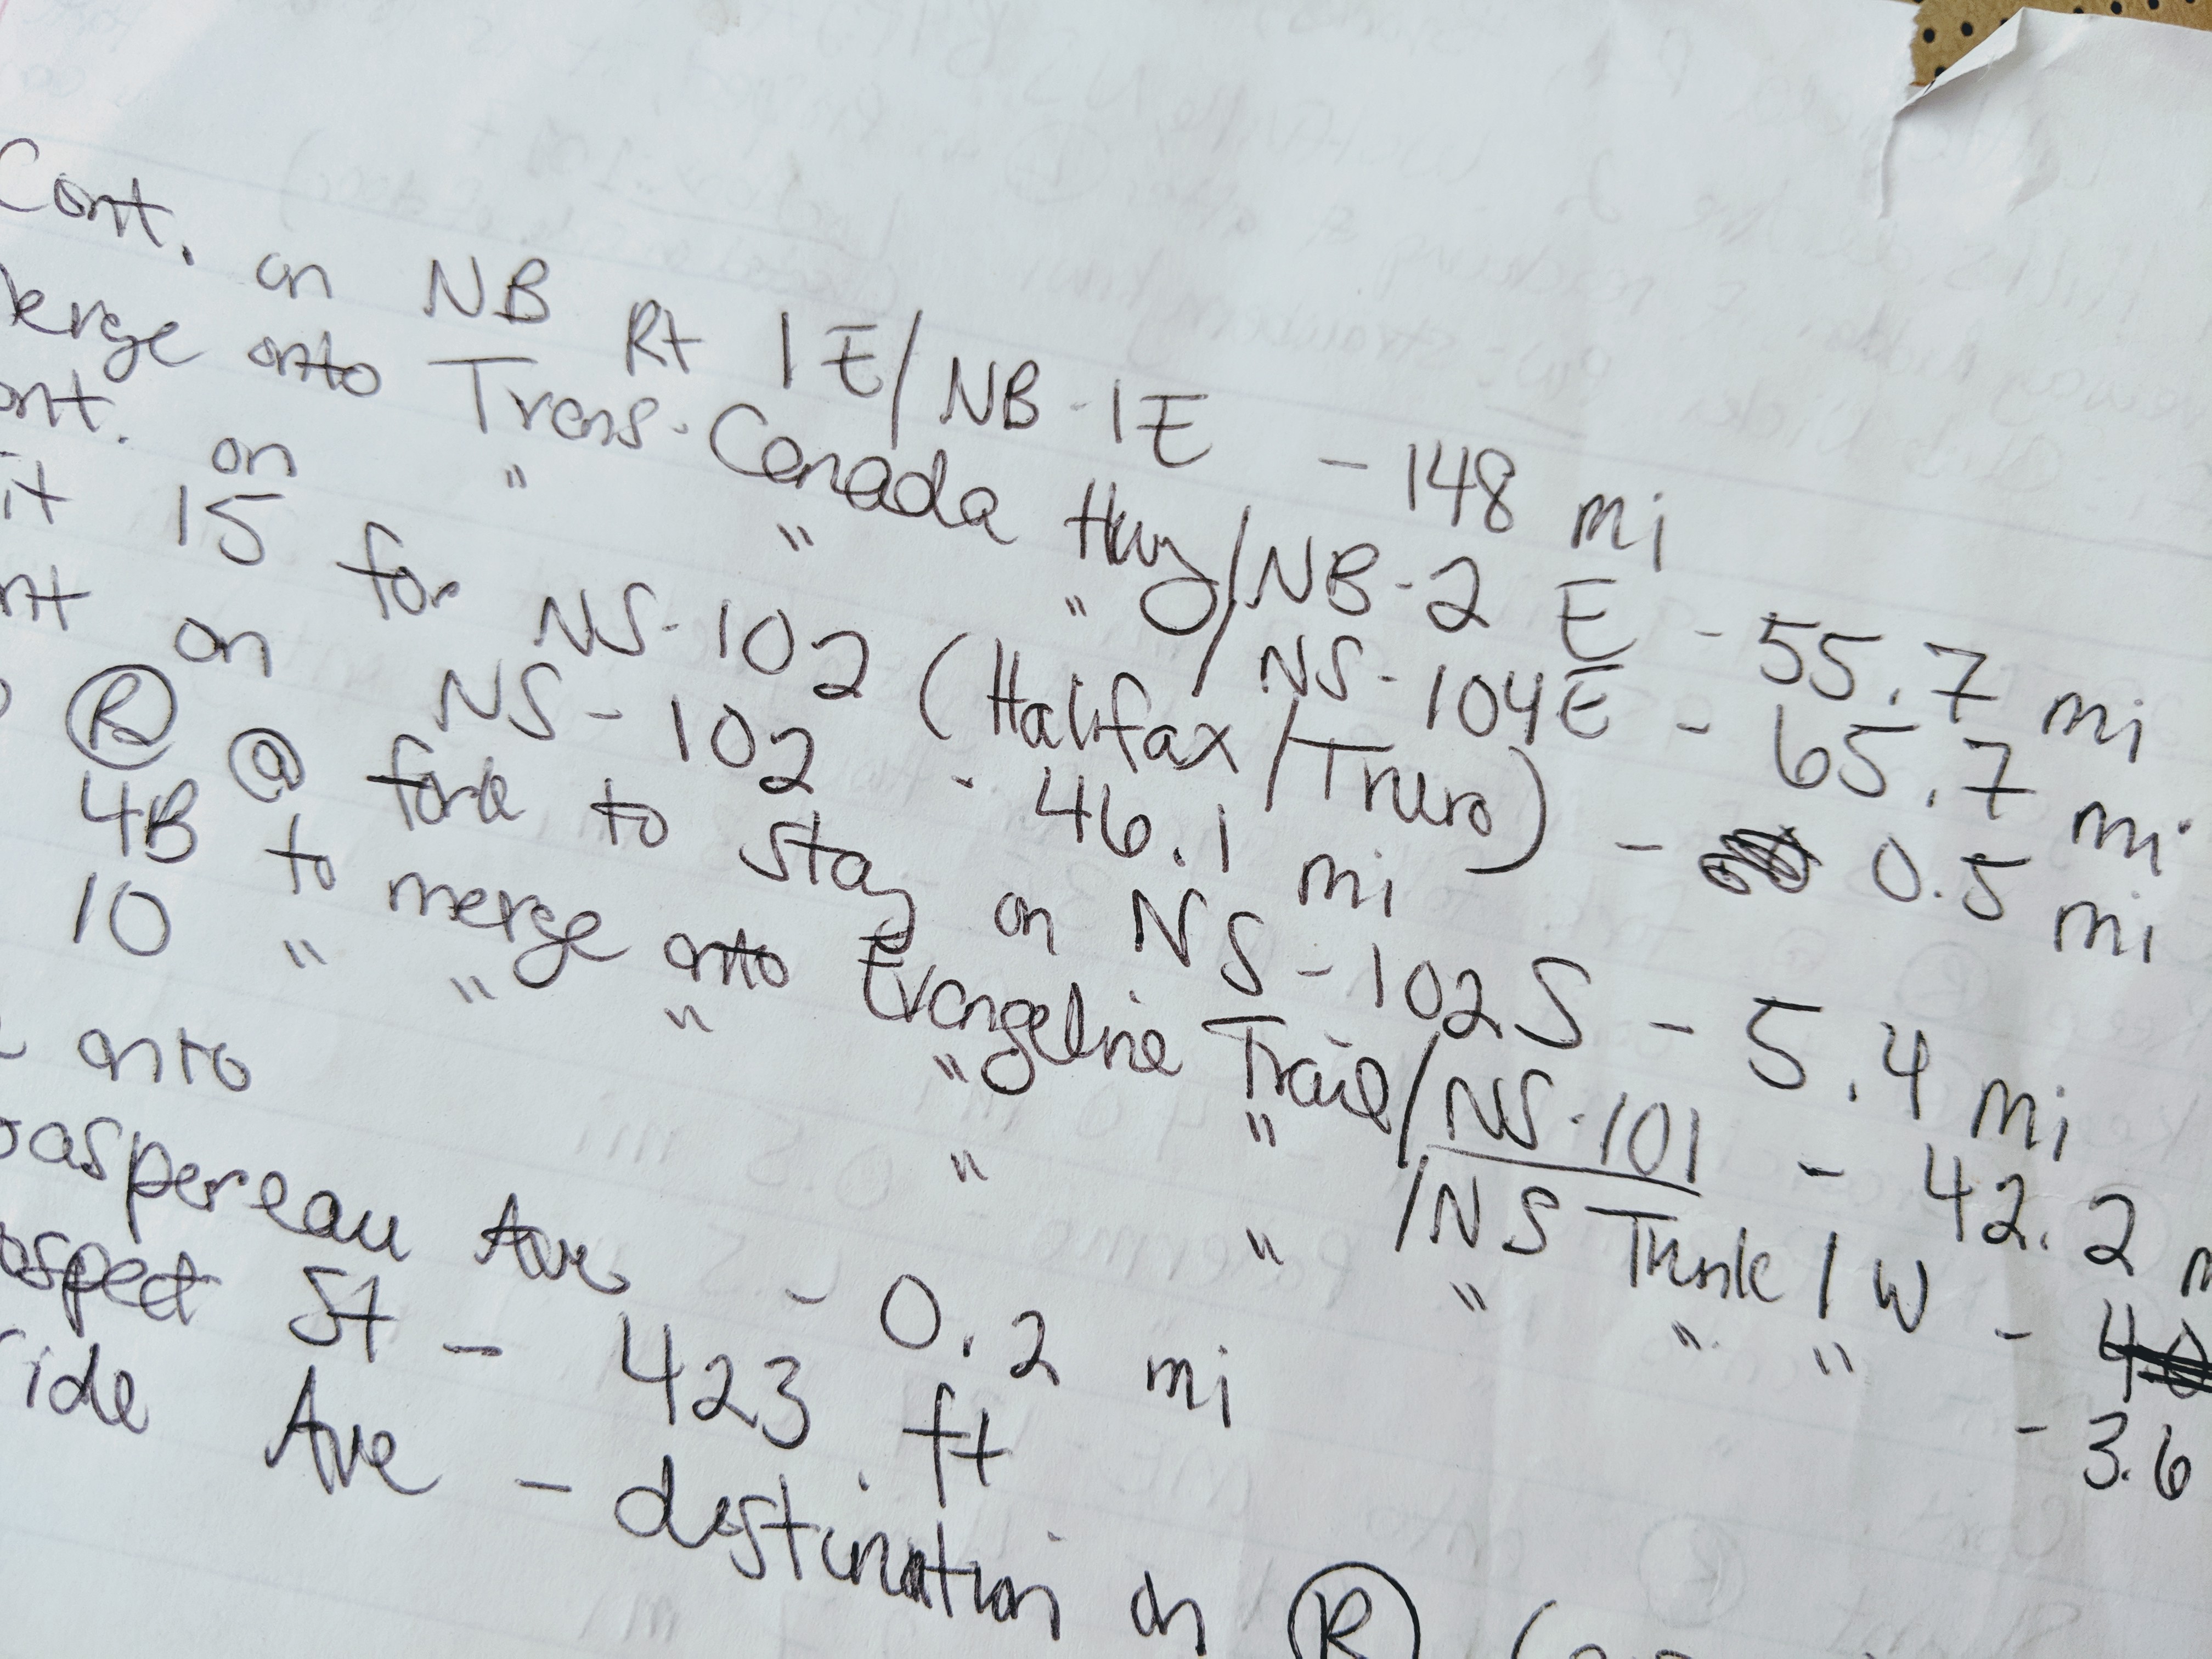 Cont. on NB Rt 1E/NB-1E - 148 mi
erge onto Trans-Canada Hwy/NB-2 E - 55.7 mi
ont. on " " "/NS-104E - 65.7 mi
it 15 for NS-102 (Halifax/Truro) - 0.5 mi
nt on NS-102 - 46.1 mi
R @ fork to stay on NS-102 S - 5.4 mi
4B to merge onto Evangeline Trail/NS-101 - 42.2 m
10 " " " " "/NS Trunk 1 W - 4
onto " " " " " - 3.6
aspereau Ave - 0.2 mi
ospect St - 423 ft
ide Ave - destination on R (